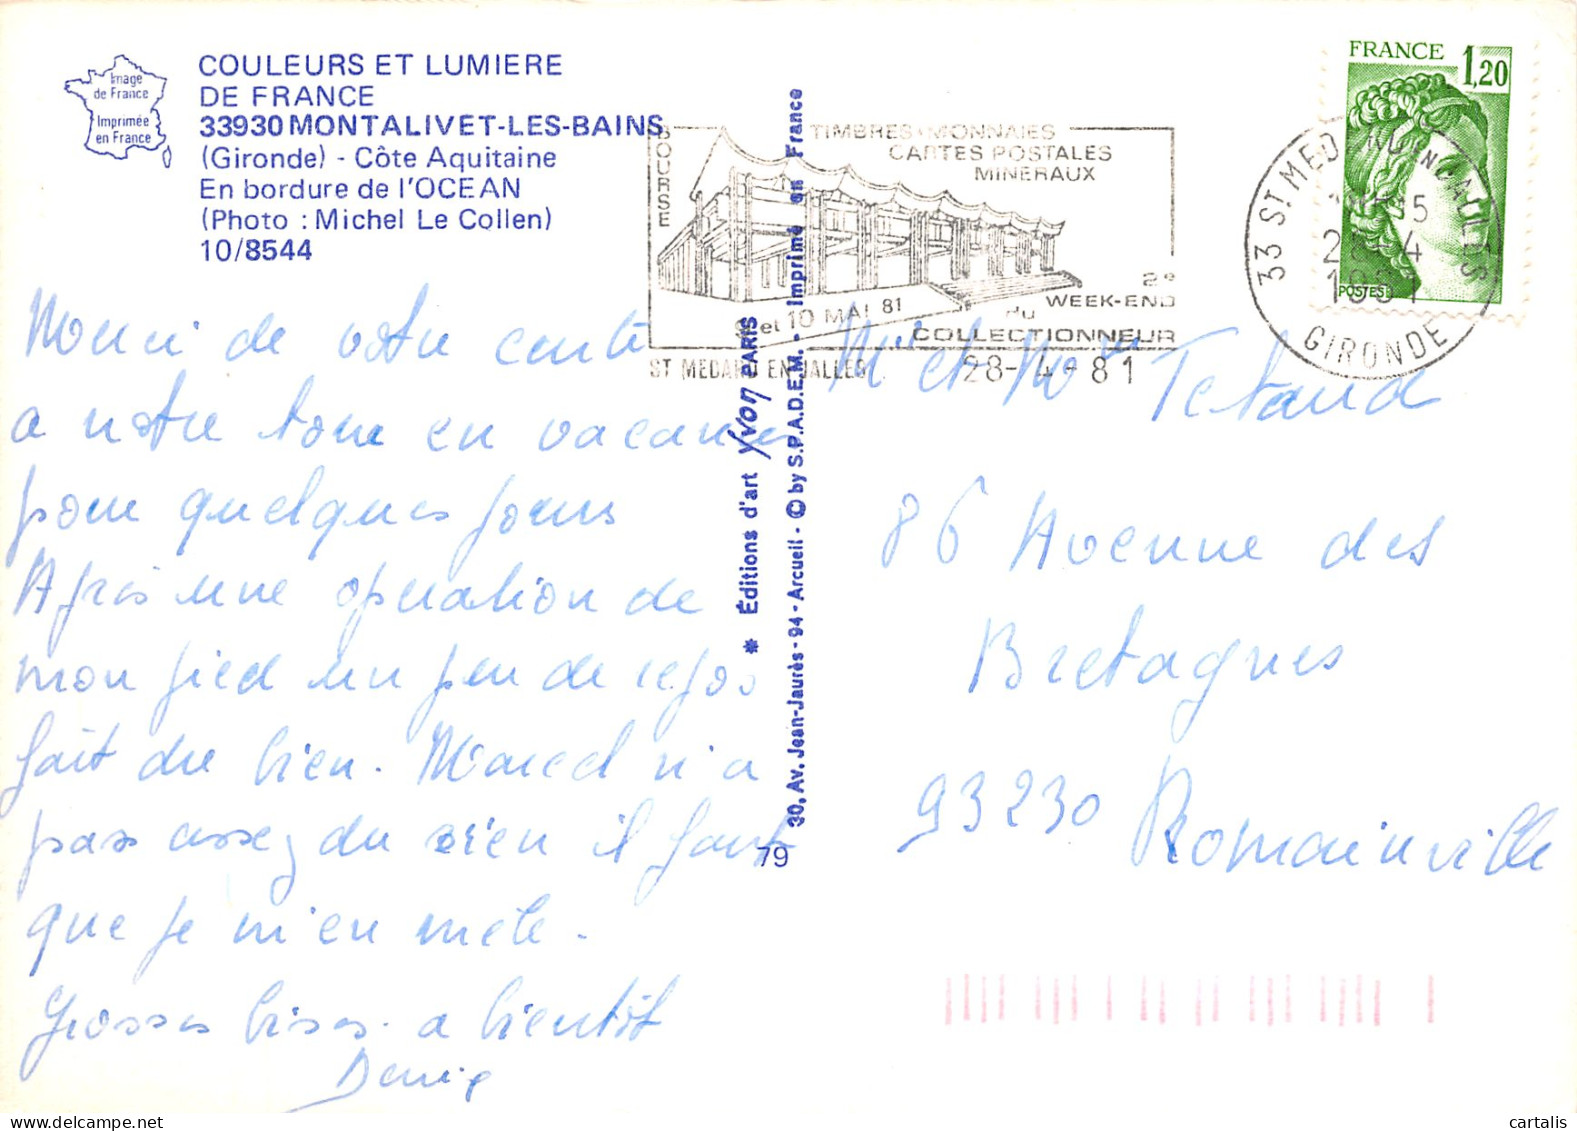 Image
de France
Imprimée
en France
COULEURS ET LUMIERE
DE FRANCE
33930 MONTALIVET-LES-BAINS
(Gironde) - Côte Aquitaine
En bordure de l'OCEAN
(Photo : Michel Le Collen)
10/8544
Merci de votre carte
a notre tour en vacances
pour quelques jours
Après une opération de
mon pied un peu de repos
fait du bien. Marcel n'a
pas assez du sien il faut
que je m'en mele.
Grosses bises. a bientôt
Denise
* Éditions d'art Yvon PARIS
30, Av. Jean-Jaurès - 94 - Arcueil - © by S.P.A.D.E.M. - Imprimé en France
79
BOURSE
TIMBRES - MONNAIES
CARTES POSTALES
MINERAUX
9 et 10 MAI 81
2e
WEEK-END
du
COLLECTIONNEUR
ST MEDARD EN JALLES
28-4-81
FRANCE
1,20
POSTES
33 ST MEDARD EN JALLES
1981
GIRONDE
Mr et Mme Tetaud
86 Avenue des
Bretagnes
93230 Romainville
cartalis